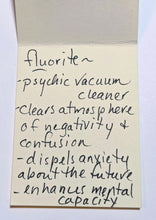 fluorite~
-psychic vacuum
cleaner
-Clears atmosphere
of negativity &
confusion
- dispels anxiety
about the future
- enhances mental
capacity